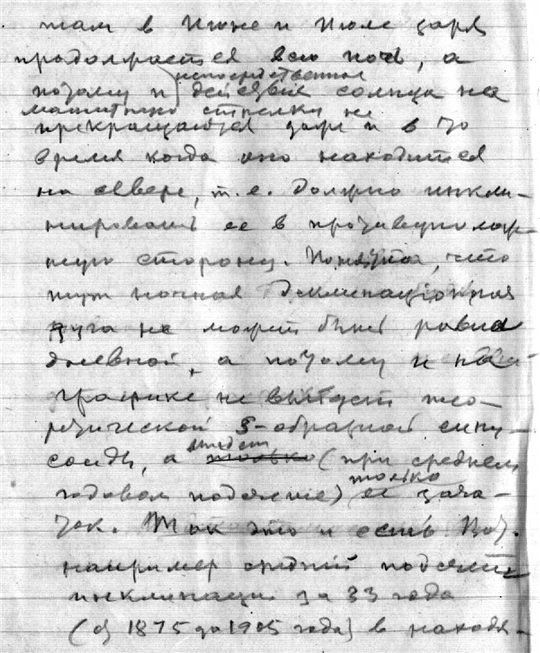 там в Июне и Июле заря
продолжается всю ночь, а
непосредственное
потому и действие солнца на
магнитную стрелку не
прекращается даже и в то
время когда оно находится
на севере, т.е. должно инкли-
нировать ее в противуполож-
ную сторону. Понятно, что
тут ночная деклинационная
дуга не может быть равна
дневной, а потому и на
графике не выйдет тео-
ретической S-образной сину-
соиды, а выйдет (при среднем
только
годовом подсчете) ее зача-
ток. Так это и есть. Вот
например средний подсчет
инклинации за 33 года
(от 1875 до 1905 года) в находя-